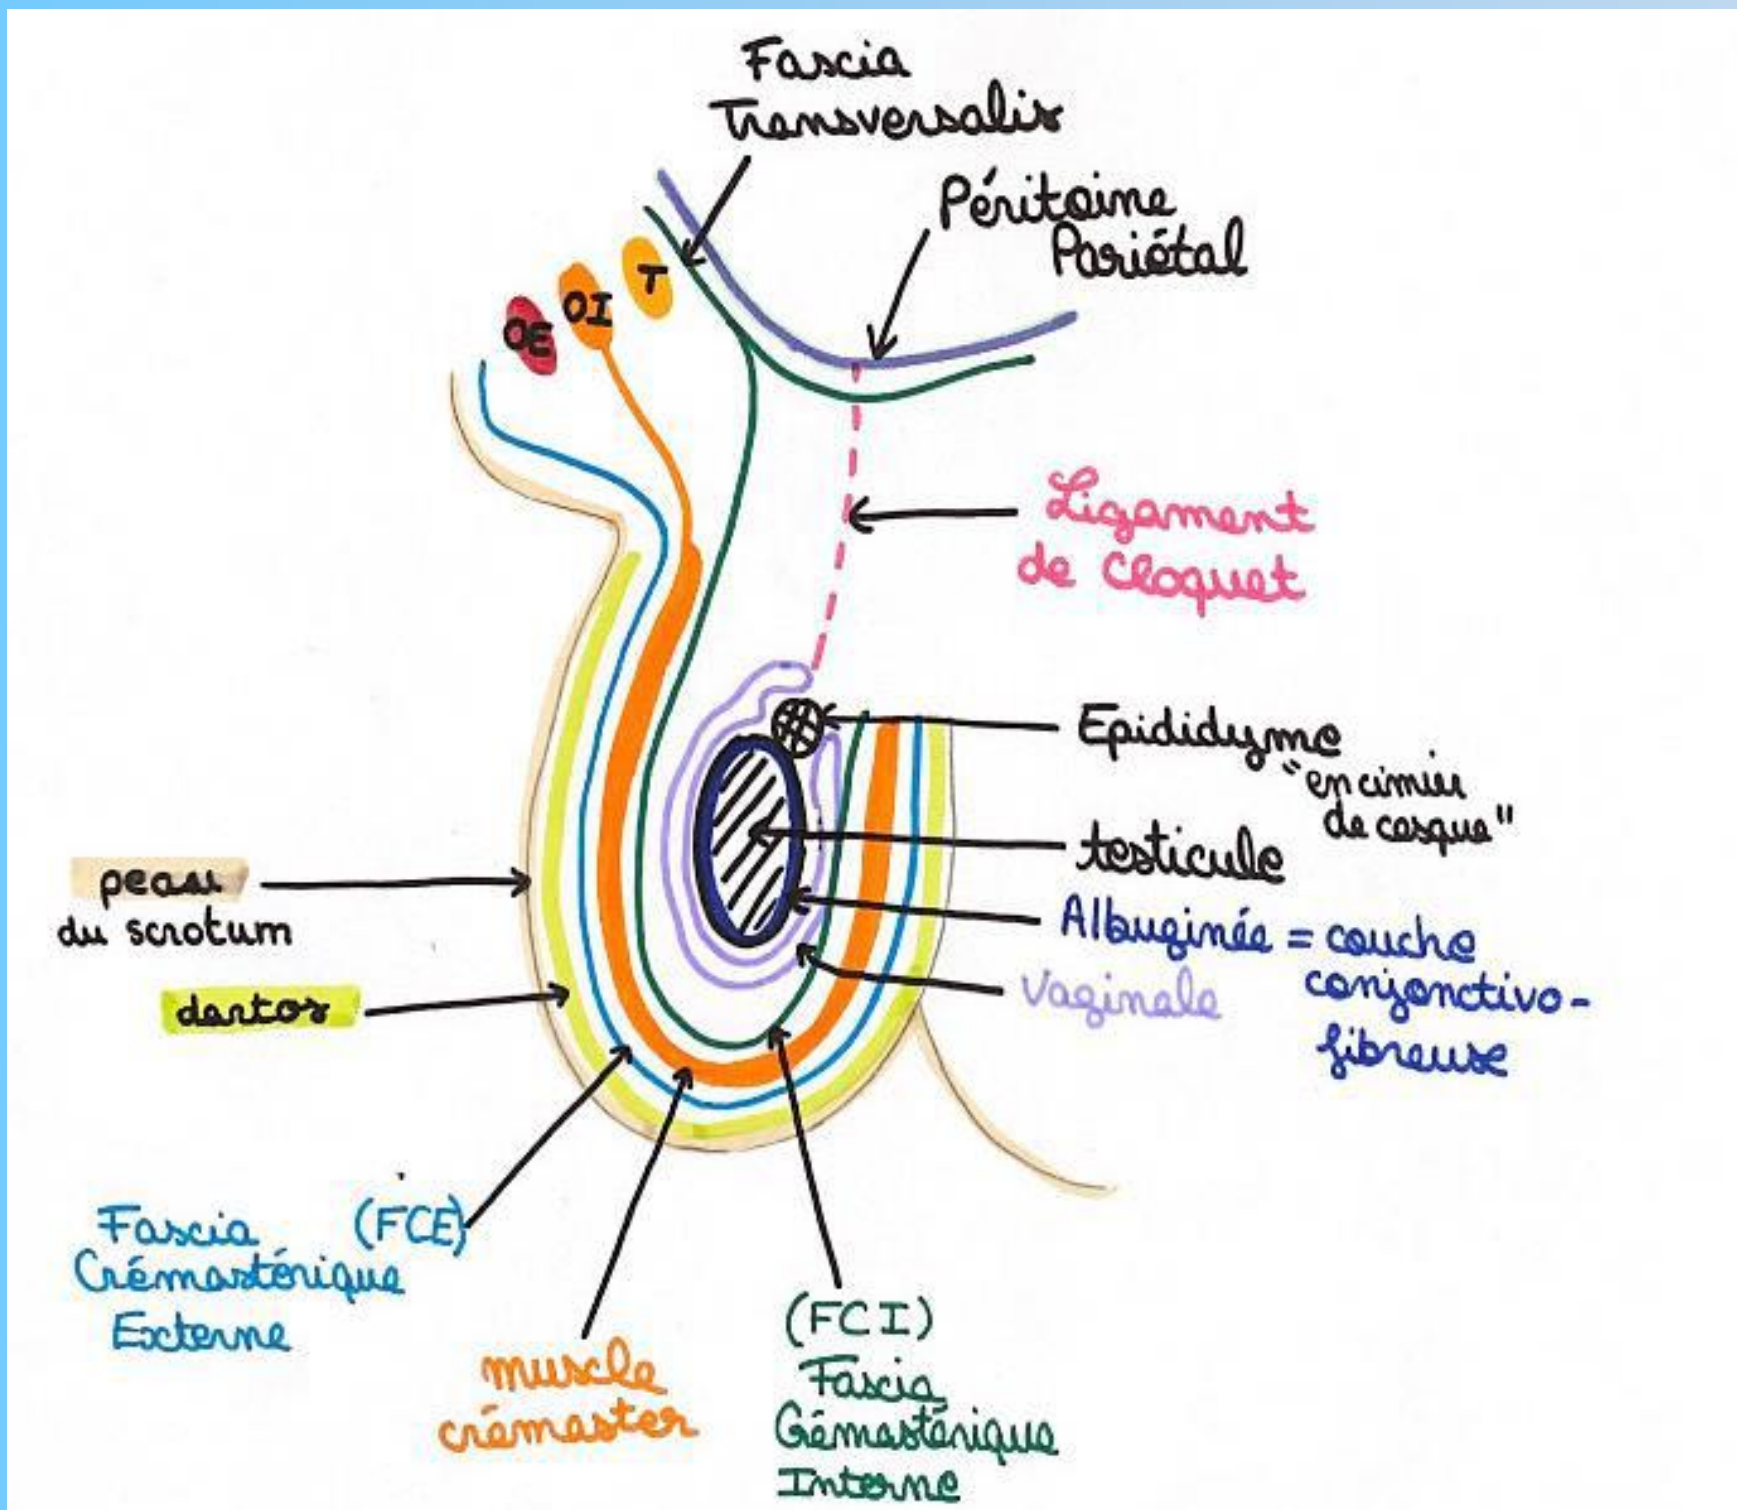 Fascia
Transversalis
Péritoine
Pariétal
T
OI
OE
Ligament
de Cloquet
Epididyme
"en cimier
de casque"
testicule
Albuginée = couche
conjonctivo-
fibreuse
Vaginale
peau
du scrotum
dartos
Fascia (FCE)
Crémastérique
Externe
muscle
crémaster
(FCI)
Fascia
Crémastérique
Interne